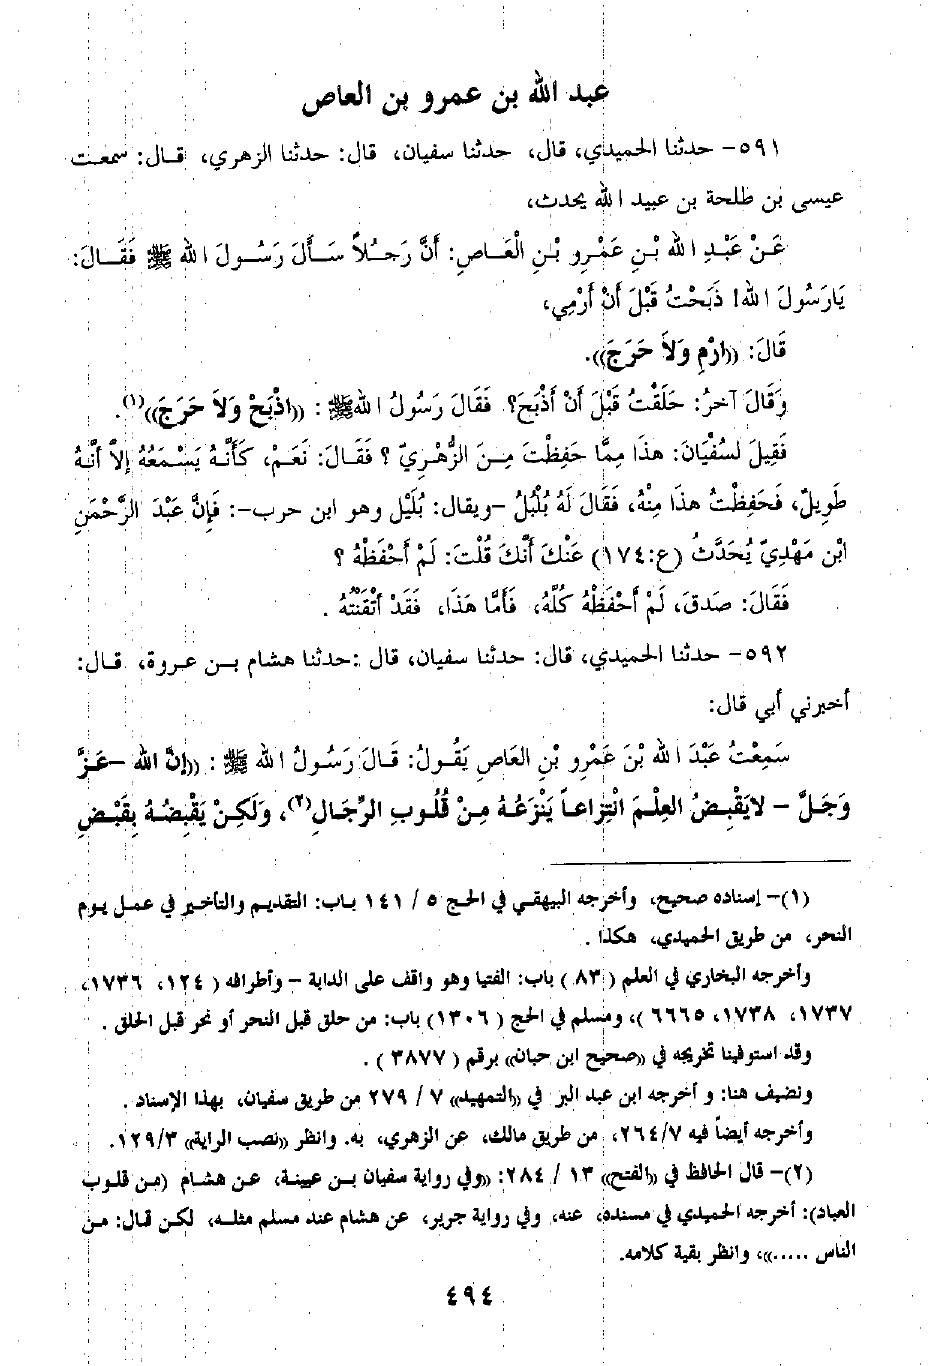 عبد الله بن عمرو بن العاص
٥٩١- حدثنا الحميدي، قال، حدثنا سفيان، قال: حدثنا الزهري، قال: سمعت
عيسى بن طلحة بن عبيد الله يحدث،
عَنْ عَبْدِ اللهِ بْنِ عَمْرِو بْنِ الْعَاصِ: أَنَّ رَجُلاً سَأَلَ رَسُولَ اللهِ ﷺ فَقَالَ:
يَارَسُولَ اللهِ! ذَبَحْتُ قَبْلَ أَنْ أَرْمِي،
قَالَ: ((ارْمِ وَلاَ حَرَجَ)).
وَقَالَ آخرُ: حَلَقْتُ قَبْلَ أَنْ أَذْبَحَ؟ فَقَالَ رَسُولُ اللهِ ﷺ: ((اذْبَحْ وَلاَ حَرَجَ))(١).
فَقِيلَ لسُفْيَانَ: هذَا مِمَّا حَفِظْتَ مِنَ الزُّهْرِيّ؟ فَقَالَ: نَعَمْ، كَأَنَّهُ يَسْمَعُهُ إِلاَّ أَنَّهُ
طَوِيلٌ، فَحَفِظْتُ هذَا مِنْهُ، فَقَالَ لَهُ بُلْبُلُ -ويقال: بُلَيْل وهو ابن حرب-: فَإِنَّ عَبْدَ الرَّحْمَنِ
ابْن مَهْدِيّ يُحَدِّثُ (ع:١٧٤) عَنْكَ أَنَّكَ قُلْتَ: لَمْ أَحْفَظْهُ؟
فَقَالَ: صَدَقَ، لَمْ أَحْفَظْهُ كُلَّهُ، فَأَمَّا هَذَا، فَقَدْ أَتْقَنْتُهُ.
٥٩٢- حدثنا الحميدي، قال: حدثنا سفيان، قال: حدثنا هشام بن عروة، قال:
أخبرني أبي قال:
سَمِعْتُ عَبْدَ اللهِ بْنَ عَمْرِو بْنِ العَاصِ يَقُولُ: قَالَ رَسُولُ اللهِ ﷺ: ((إِنَّ الله -عَزَّ
وَجَلَّ - لاَيَقْبِضُ العِلْمَ انْتِزاعاً يَنْزِعُهُ مِنْ قُلُوبِ الرِّجَالِ(٢)، وَلَكِنْ يَقْبِضُهُ بِقَبْضِ
(١)- إسناده صحيح، وأخرجه البيهقي في الحج ٥ / ١٤١ باب: التقديم والتأخير في عمل يوم
النحر، من طريق الحميدي، هكذا.
وأخرجه البخاري في العلم (٨٣) باب: الفتيا وهو واقف على الدابة - وأطرافه (١٢٤، ١٧٣٦،
١٧٣٧، ١٧٣٨، ٦٦٦٥)، ومسلم في الحج (١٣٠٦) باب: من حلق قبل النحر أو نحر قبل الحلق.
وقد استوفينا تخريجه في ((صحيح ابن حبان)) برقم (٣٨٧٧).
ونضيف هنا: و أخرجه ابن عبد البر في ((التمهيد)) ٧ / ٢٧٩ من طريق سفيان، بهذا الإسناد.
وأخرجه أيضاً فيه ٢٦٤/٧، من طريق مالك، عن الزهري، به. وانظر ((نصب الراية)) ١٢٩/٣.
(٢)- قال الحافظ في ((الفتح)) ١٣ / ٢٨٤: ((وفي رواية سفيان بن عيينة، عن هشام (من قلوب
العباد): أخرجه الحميدي في مسنده، عنه، وفي رواية جرير، عن هشام عند مسلم مثله، لكن قال: من
الناس .....))، وانظر بقية كلامه.
٤٩٤